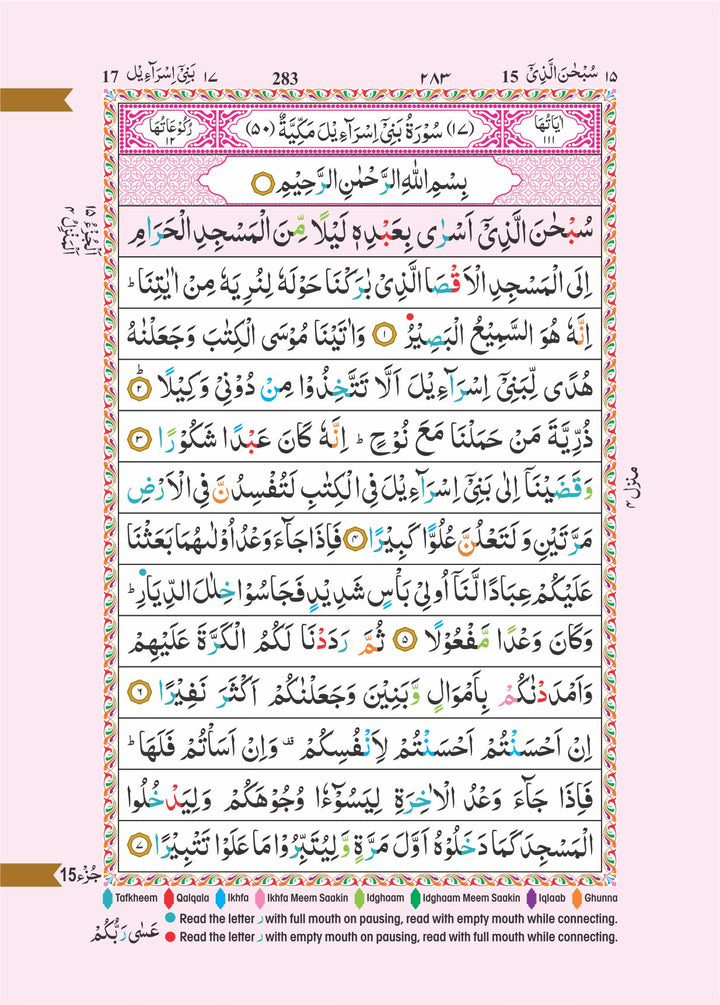 ١٥ سُبْحٰنَ الَّذِیْۤ 15 ٢٨٣ 283 ١٧ بَنِیْۤ اِسْرَآءِیْل 17
اٰیَاتُهَا ١١١ (١٧) سُوْرَةُ بَنِیْۤ اِسْرَآءِیْلَ مَكِّیَّةٌ (٥٠) رُكُوْعَاتُهَا ١٢
بِسْمِ اللّٰهِ الرَّحْمٰنِ الرَّحِیْمِ
سُبْحٰنَ الَّذِیْۤ اَسْرٰی بِعَبْدِهٖ لَیْلًا مِّنَ الْمَسْجِدِ الْحَرَامِ
اِلَی الْمَسْجِدِ الْاَقْصَا الَّذِیْ بٰرَكْنَا حَوْلَهٗ لِنُرِیَهٗ مِنْ اٰیٰتِنَا ؕ
اِنَّهٗ هُوَ السَّمِیْعُ الْبَصِیْرُ ١ وَاٰتَیْنَا مُوْسَی الْكِتٰبَ وَجَعَلْنٰهُ
هُدًی لِّبَنِیْۤ اِسْرَآءِیْلَ اَلَّا تَتَّخِذُوْا مِنْ دُوْنِیْ وَكِیْلًا ؕ ٢
ذُرِّیَّةَ مَنْ حَمَلْنَا مَعَ نُوْحٍ ؕ اِنَّهٗ كَانَ عَبْدًا شَكُوْرًا ٣
وَقَضَیْنَاۤ اِلٰی بَنِیْۤ اِسْرَآءِیْلَ فِی الْكِتٰبِ لَتُفْسِدُنَّ فِی الْاَرْضِ
مَرَّتَیْنِ وَلَتَعْلُنَّ عُلُوًّا كَبِیْرًا ٤ فَاِذَا جَآءَ وَعْدُ اُوْلٰىهُمَا بَعَثْنَا
عَلَیْكُمْ عِبَادًا لَّنَاۤ اُولِیْ بَاْسٍ شَدِیْدٍ فَجَاسُوْا خِلٰلَ الدِّیَارِ ؕ
وَكَانَ وَعْدًا مَّفْعُوْلًا ٥ ثُمَّ رَدَدْنَا لَكُمُ الْكَرَّةَ عَلَیْهِمْ
وَاَمْدَدْنٰكُمْ بِاَمْوَالٍ وَّبَنِیْنَ وَجَعَلْنٰكُمْ اَكْثَرَ نَفِیْرًا ٦
اِنْ اَحْسَنْتُمْ اَحْسَنْتُمْ لِاَنْفُسِكُمْ ۫ وَاِنْ اَسَاْتُمْ فَلَهَا ؕ
فَاِذَا جَآءَ وَعْدُ الْاٰخِرَةِ لِیَسُوْٓءٗا وُجُوْهَكُمْ وَلِیَدْخُلُوا
الْمَسْجِدَ كَمَا دَخَلُوْهُ اَوَّلَ مَرَّةٍ وَّلِیُتَبِّرُوْا مَا عَلَوْا تَتْبِیْرًا ٧
اَلْجُزْءُ ١٥
اَلْمَنْزِلُ ٤
منزل ٤
جُزْء 15
Tafkheem Qalqala Ikhfa Ikhfa Meem Saakin Idghaam Idghaam Meem Saakin Iqlaab Ghunna
Read the letter ر with full mouth on pausing, read with empty mouth while connecting.
Read the letter ر with empty mouth on pausing, read with full mouth while connecting.
عَسٰی رَبُّكُمْ